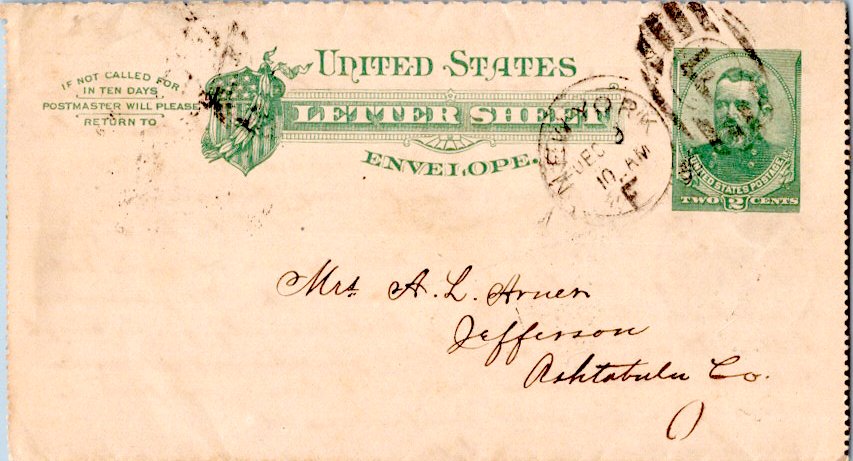 IF NOT CALLED FOR
IN TEN DAYS
POSTMASTER WILL PLEASE
RETURN TO
UNITED STATES
LETTER SHEET
ENVELOPE.
NEW YORK
DEC 9
10-AM
UNITED STATES POSTAGE
TWO 2 CENTS
Mrs A. L. Arner
Jefferson
Ashtabula Co.
O